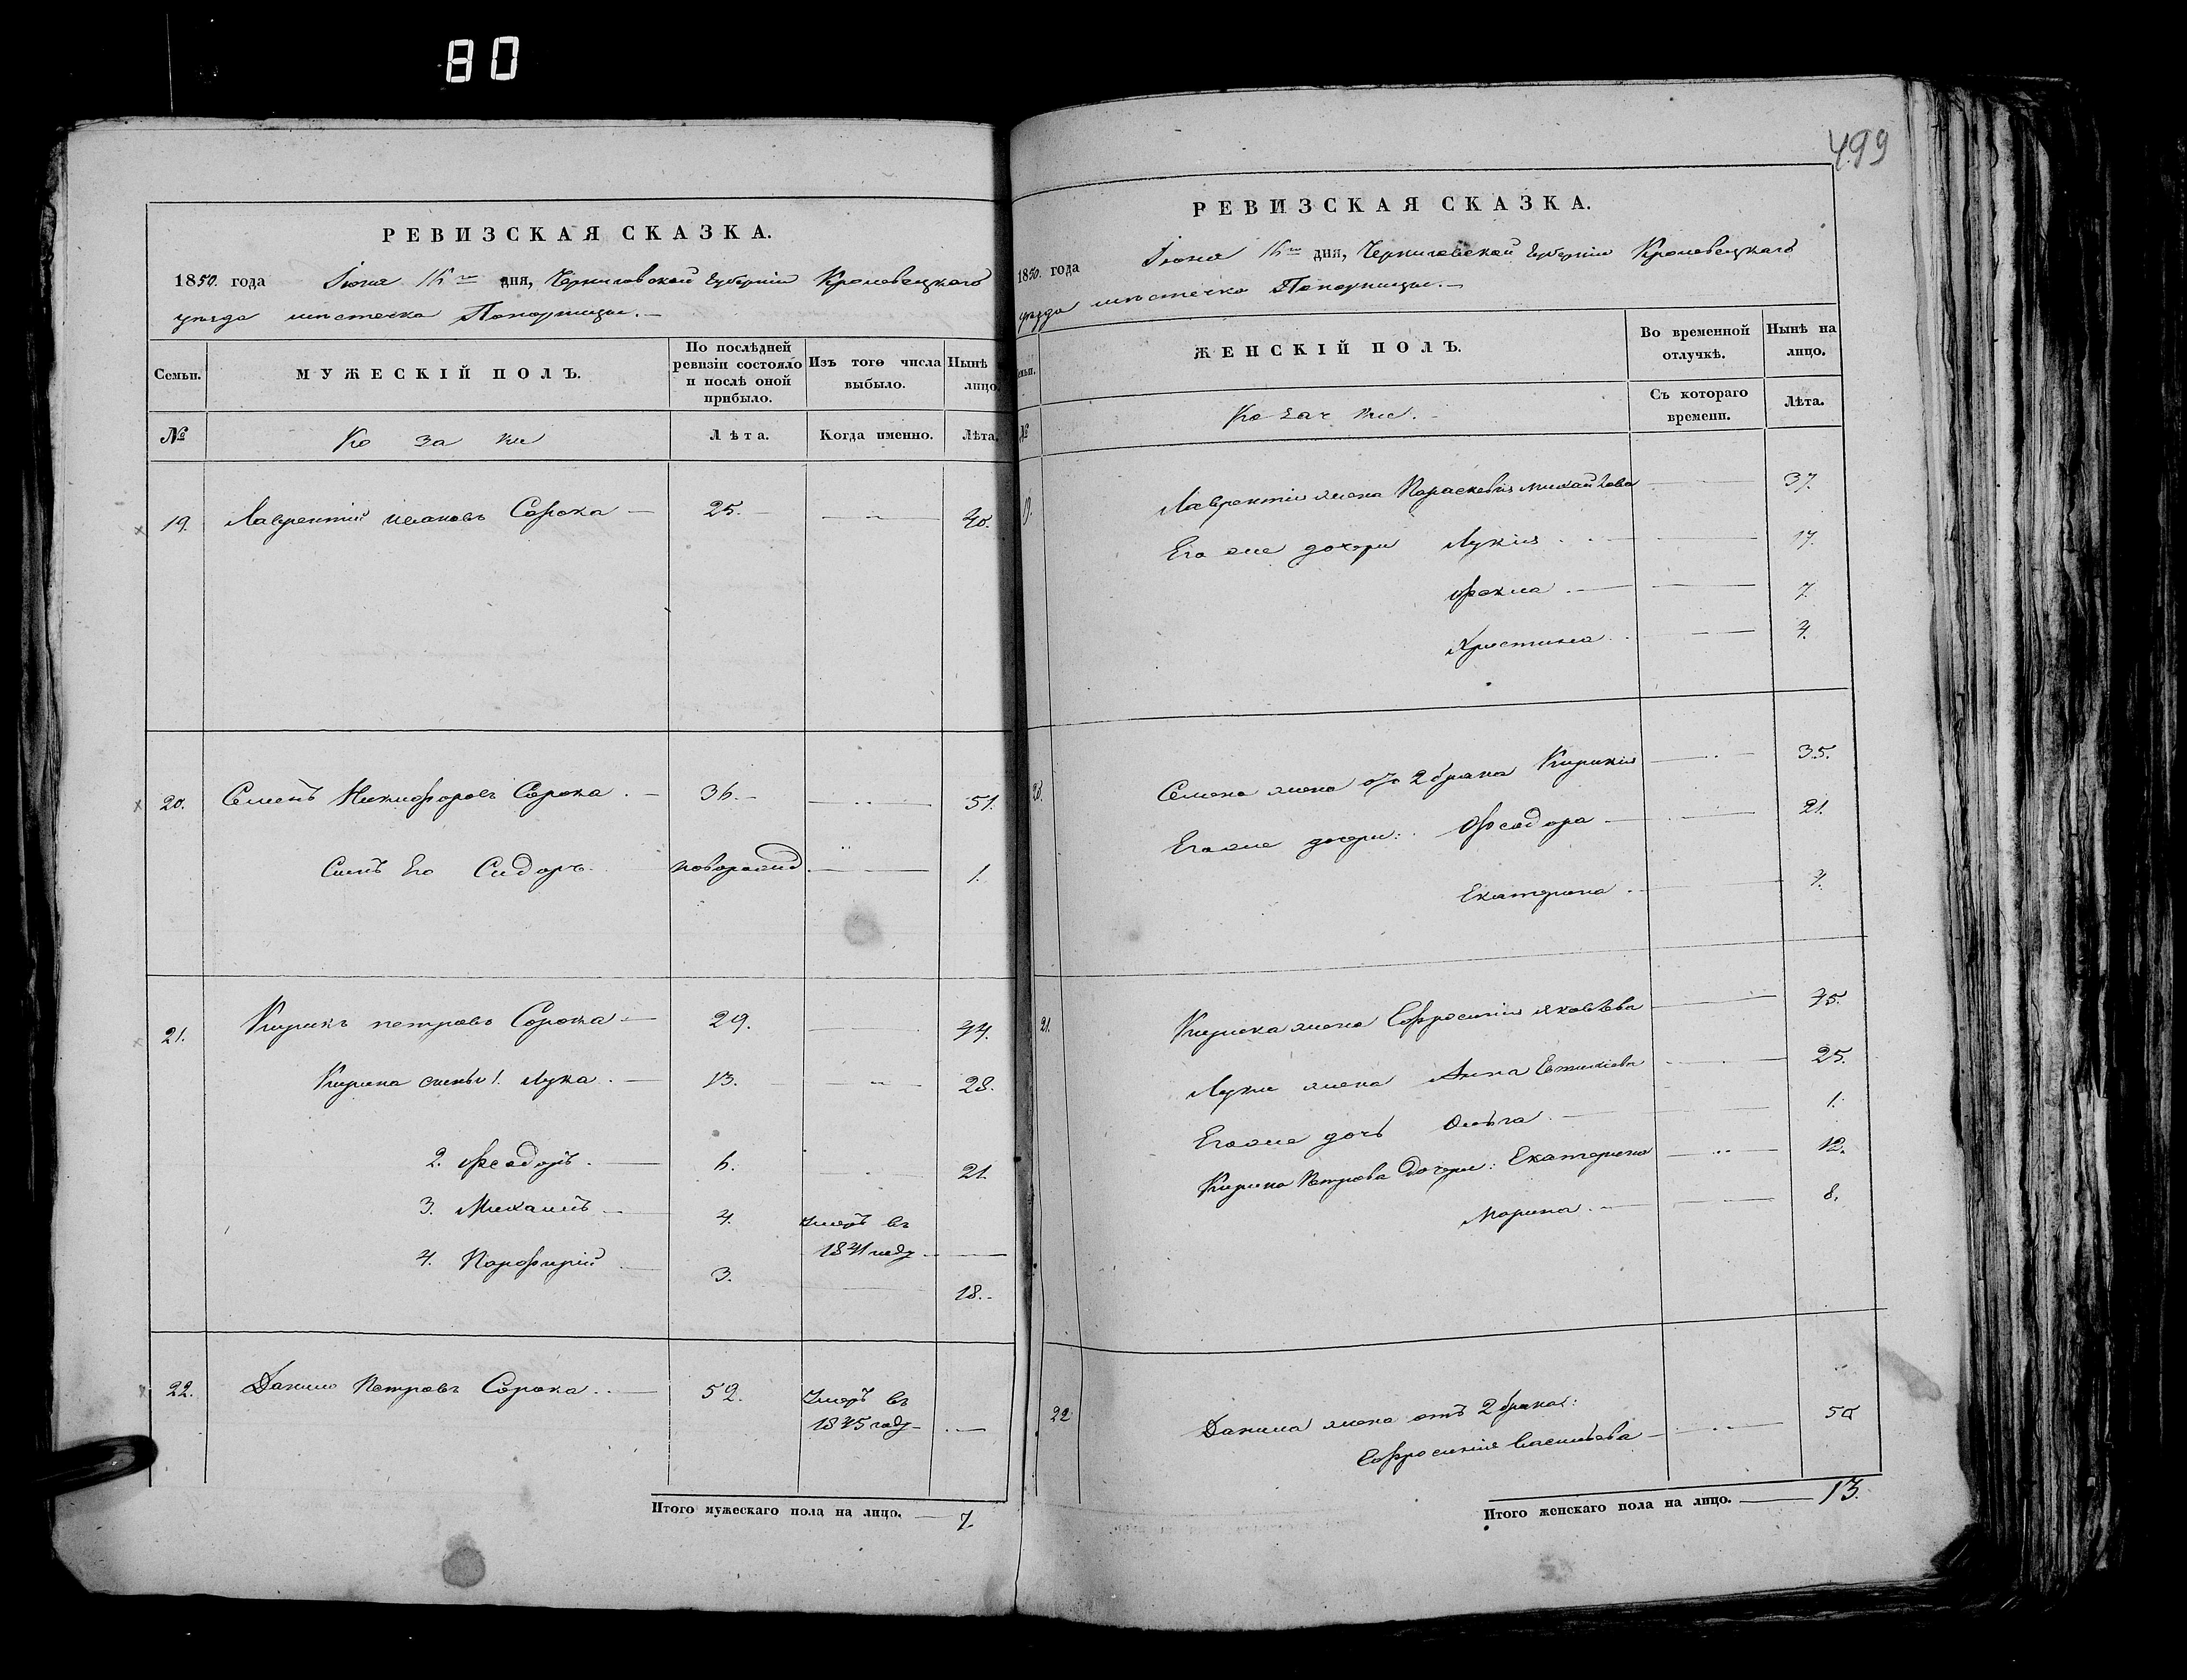 80
499
РЕВИЗСКАЯ СКАЗКА.
1850. года Іюня 16го дня, Черниговской Губерніи Кролевецкаго
уезда местечка Понорницы.
Семьи.
МУЖЕСКІЙ ПОЛЪ.
По послѣдней ревизіи состояло и послѣ оной прибыло.
Изъ того числа выбыло.
Нынѣ лицо
№
Козаки
Лѣта.
Когда именно.
Лѣта.
19. Лаврентій Ивановъ Сорока — 25. — 40.
20. Семенъ Никифоровъ Сорока — 36. — 51.
Сынъ Его Сидоръ новорожд — 1.
21. Кирикъ Петровъ Сорока — 29. 44.
Кирика сыны 1. Лука — 13. 28.
2. Феодоръ — 6. 21.
3. Михаилъ — 4. умеръ въ
1841 году —
4. Порфирій 3. 18.
22. Данило Петровъ Сорока — 52. Умеръ въ
1845 году —
Итого мужескаго пола на лицо. — 7.
РЕВИЗСКАЯ СКАЗКА.
1850. года Іюня 16го дня, Черниговской Губерніи Кролевецкаго
уезда местечка Понорницы. —
Семьи.
ЖЕНСКІЙ ПОЛЪ.
Во временной отлучкѣ.
Нынѣ на лицо.
№
Козачки.
Съ котораго времени.
Лѣта.
19. Лаврентія жена Параскевія Михайлова 37.
Его же дочери Лукія — 17.
Фекла — 7.
Христина 4.
20. Семена жена отъ 2 брака Кирикія — 35.
Его же дочери: Феодора — 21.
Екатерина 4.
21. Кирика жена Ефросинія Яковлева — 45.
Луки жена Анна 25.
Его же дочь Ольга 1.
Кирика Петрова дочери: Екатерина — 12.
Марина — 8.
22. Данила жена отъ 2 брака:
Ефросинія Васильева — 50
Итого женскаго пола на лицо. — 13.